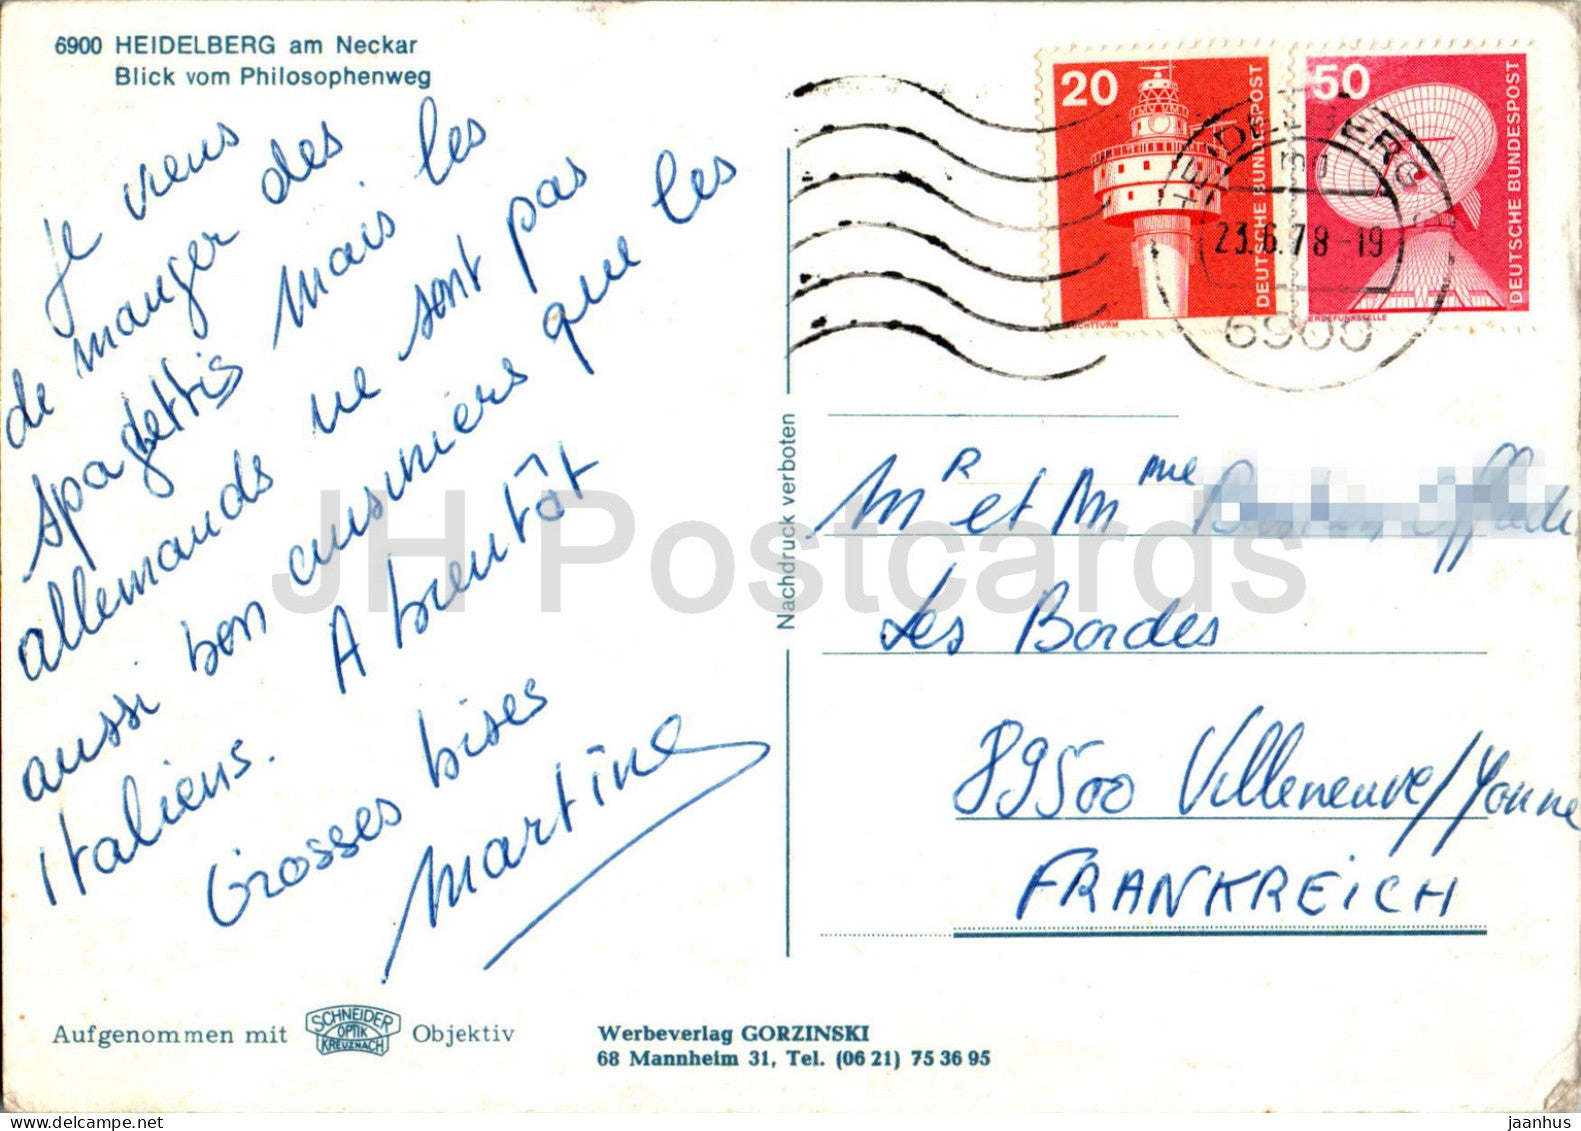 6900 HEIDELBERG am Neckar
Blick vom Philosophenweg
Je viens
de manger des
spagettis mais les
allemands ne sont pas
aussi bon cuisiniers que les
italiens. A bientôt
Grosses bises
Martine
Nachdruck verboten
20
DEUTSCHE BUNDESPOST
LEUCHTTURM
50
DEUTSCHE BUNDESPOST
ERDEFUNKSTELLE
HEIDELBERG
23.6.78-19
6900
Mr et Mme
Les Bordes
89500 Villeneuve/Yonne
FRANKREICH
Aufgenommen mit SCHNEIDER OPTIK KREUZNACH Objektiv
Werbeverlag GORZINSKI
68 Mannheim 31, Tel. (06 21) 75 36 95
JH Postcards
jaanhus
delcampe.net